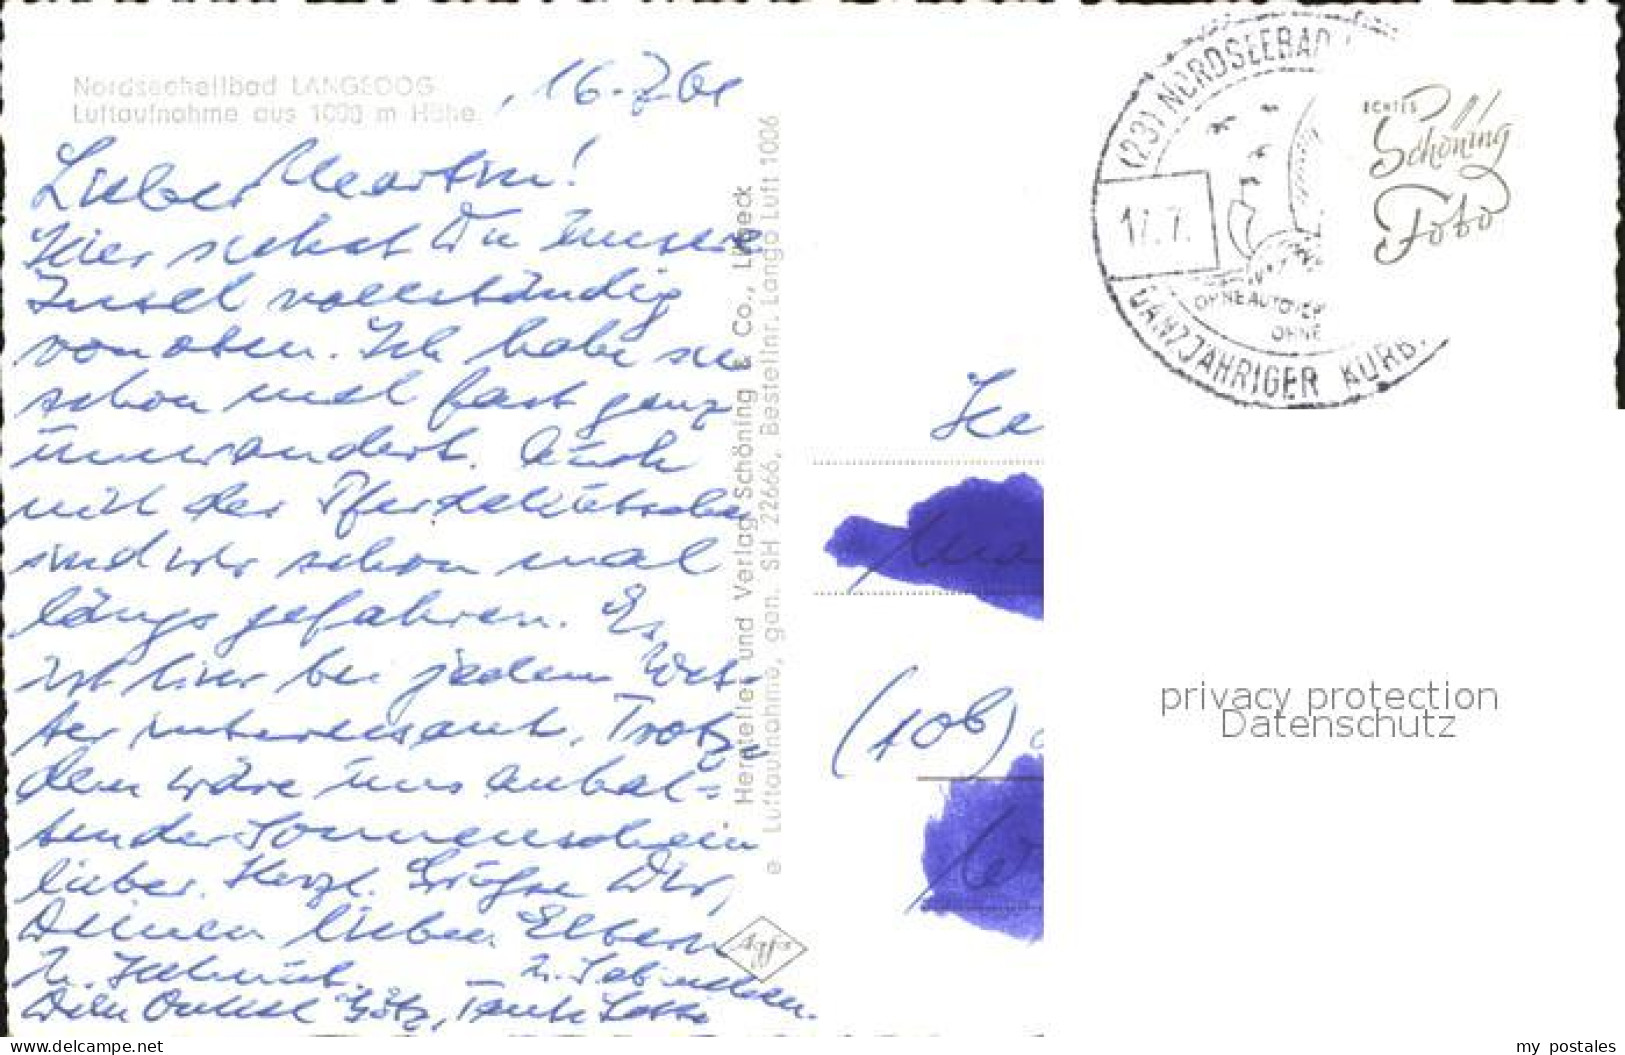 Nordseeheilbad LANGEOOG
Luftaufnahme aus 1000 m Höhe
16.7.61
Lieber Martin!
Hier siehst Du unsere
Insel vollständig
von oben. Ich habe sie
schon mal fast ganz
umwandert. Auch
mit der Pferdekutsche
sind wir schon mal
längs gefahren. Es
ist hier bei jedem Wet-
ter interessant. Trotz-
dem wäre uns anhal-
tender Sonnenschein
lieber. Herzl. Grüße Dir,
Deinen lieben Eltern
u. Helmut. u.
Dein Onkel Götz, Tante Lotte
Hersteller und Verlag Schöning & Co., Lübeck
Luftaufnahme, gen. SH 22666, Bestellnr. Lango Luft 1006
Agfa
(23) NORDSEEBAD
17.7.
OHNE AUTO
OHNE
GANZJÄHRIGER KURB
ECHTES
Schöning
Foto
(10b)
privacy protection
Datenschutz
www.delcampe.net
my_postales